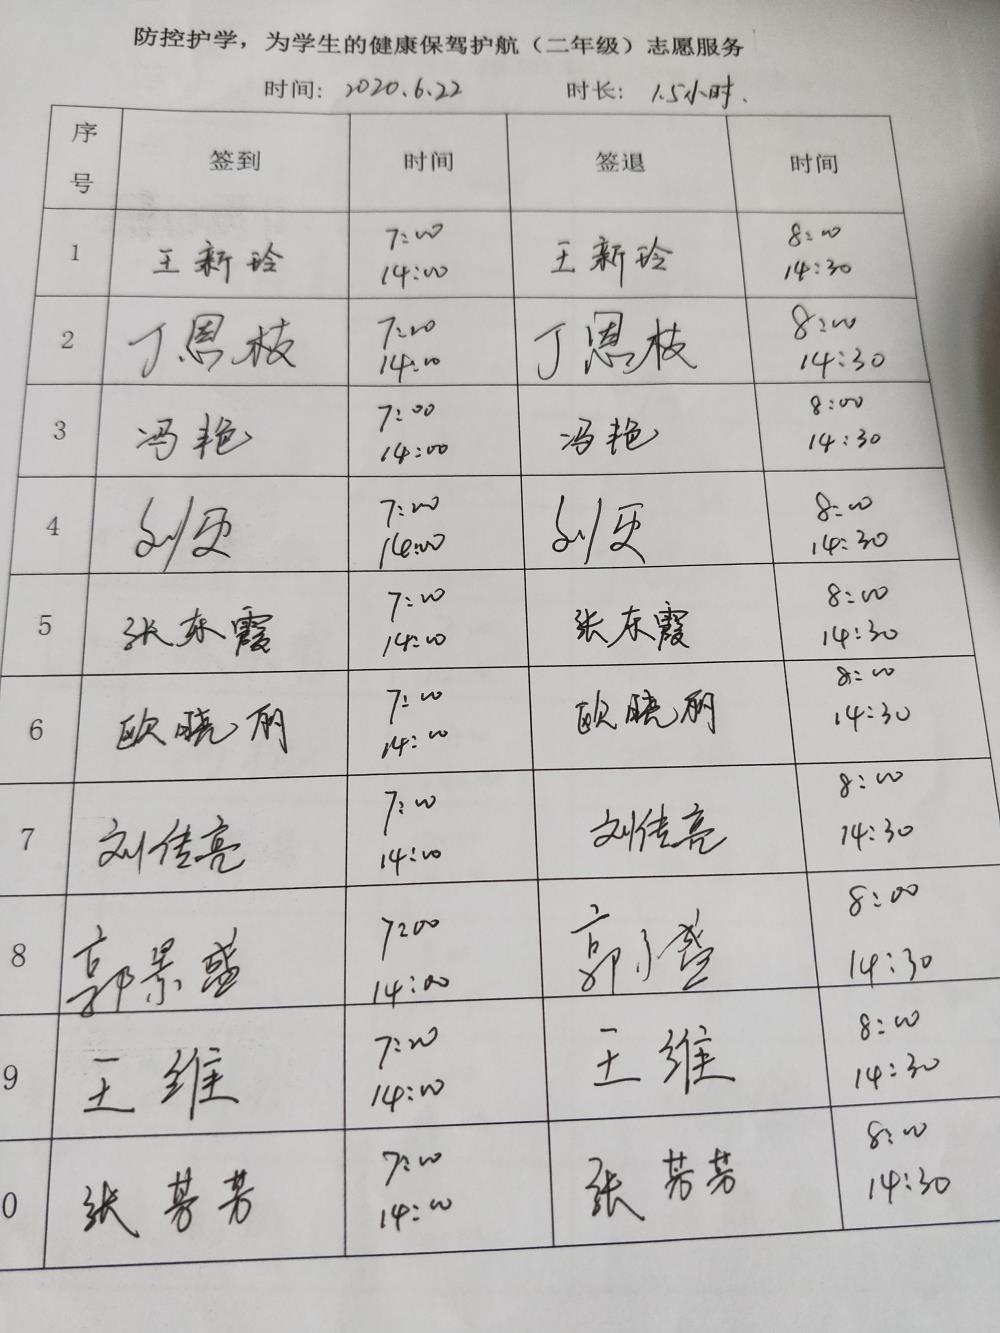 防控护学，为学生的健康保驾护航（二年级）志愿服务
时间: 2020.6.22 时长: 1.5小时.
序号 签到 时间 签退 时间
1 王新玲 7:00 14:00 王新玲 8:00 14:30
2 丁恩枝 7:00 14:00 丁恩枝 8:00 14:30
3 冯艳 7:00 14:00 冯艳 8:00 14:30
4 刘更 7:00 14:00 刘更 8:00 14:30
5 张东霞 7:00 14:00 张东霞 8:00 14:30
6 欧晓丽 7:00 14:00 欧晓丽 8:00 14:30
7 刘佳亮 7:00 14:00 刘佳亮 8:00 14:30
8 郭景盛 7:00 14:00 郭 盛 8:00 14:30
9 王维 7:00 14:00 王维 8:00 14:30
0 张芳芳 7:00 14:00 张芳芳 8:00 14:30